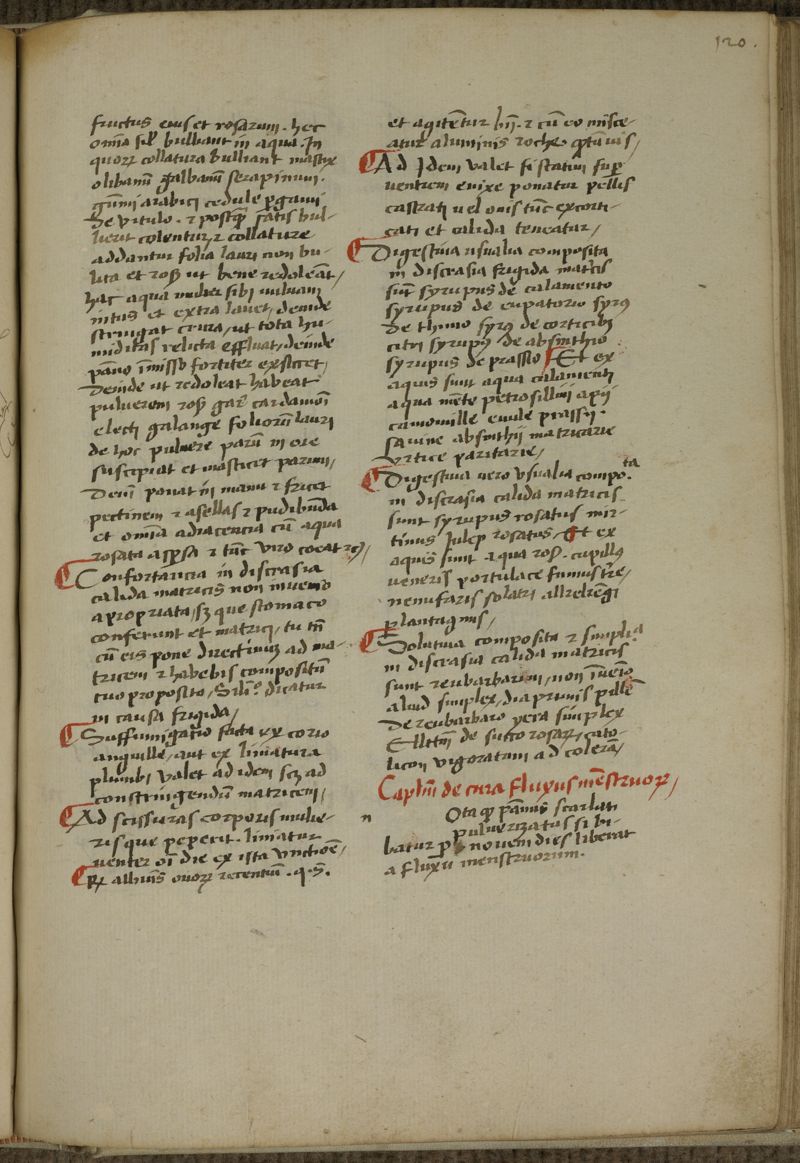 120.
fructus eius et rosarum. hec
om̄ia sil' bulliant in aqua. In
quorꝝ collatura bulliant mastix
olibanū galbanū serapinum.
gūmi arabici cedule p̄gamī
de vitulo. ⁊ postꝙ satis bul-
lierit colentur, ⁊ collature
addantur folia lauri non bu-
lita et ros̄ ut bene redoleāt,
hac aqua mulier sibi vuluam
intus et extra lauet, deinde
stringat crura, ut tota hu-
miditas relicta effluat, deinde
pāno īmisso fortiter exsiccet,
Deinde ut redoleat habeat
puluerem ros̄ gar̄ cardamōi
electi galange foliorū lauri
de hoc puluere parū in ore
suscipiat et masticet parum,
Deīn ponat in manu ⁊ fricet
pectinem ⁊ asellas ⁊ pudibūda
et om̄ia adiacencia cū aqua
rosata asp̄sa ⁊ tūc viro coeat ⁊c,
Confortancia in discrasia
calida matricis non inuenio
apropriata, sꝫ que stomaco
conferunt et matrici, tu tn̄
cū eis pone directiuꝫ ad ma-
tricem ⁊ habebis compositū
tuo proposito, Silr̄ dicatur
in causa frigida,
Suffumigatio facta ex corio
anguille, aut ex limatura
plumbi valet ad idem scꝫ ad
constringendū matricem,
Ad scissuras corporis mulie-
ris que peperit. liniatur
uenter oī die ex ista vnctiōe,
Rx albuīs ouorꝝ recentiū. q. s̄.
et agitētur iīj. ⁊ cū eo misce-
atur aluminis roche q̄ntūuis,
Ad Idem valet si statim sup̄
uentrem enixe ponatur pellis
castrati uel ouis tūc excorti-
cati et calida teneatur,
Digestiua usualia composita
in discrasia frigida matricis
sūt syrupus de calamento
syrupus de eupatorio syrꝰ
de thimo syrꝰ de corticibꝫ
citri syrupꝰ de absinthio
syrupus de prassio Et ex
aquis sunt aqua calamenti
aqua mēte petrosillini apij
camomille enule prassij.
sauine absinthij matricarie
vrtice paritarie,
Digestiua uero vsualia compo.ta
in discrasia calida matricis
sunt syrupus rosatus mir-
tinus Julep rosatus, Et ex
aquis sunt aqua ros̄. capillꝰ
ueneris portulace fumiterre,
nenufaris solatri alkekēgi
plantaginis,
Solutiua composita ⁊ simplia
in discrasia calida matricis
sunt reubarbarum, non īuenio
aliud simplex, diaprunis pillē
de reubarbaro yera simplex
Ellctm̄ de succo rosarꝝ, cato-
licon vigoratum ad colerā,
Caplm̄ de cura fluxus mēstruorꝝ,
n Ota ꝙ pānus scarlati
pulverizatus si bi-
batur p novem dies liberat
a fluxu menstruorum.